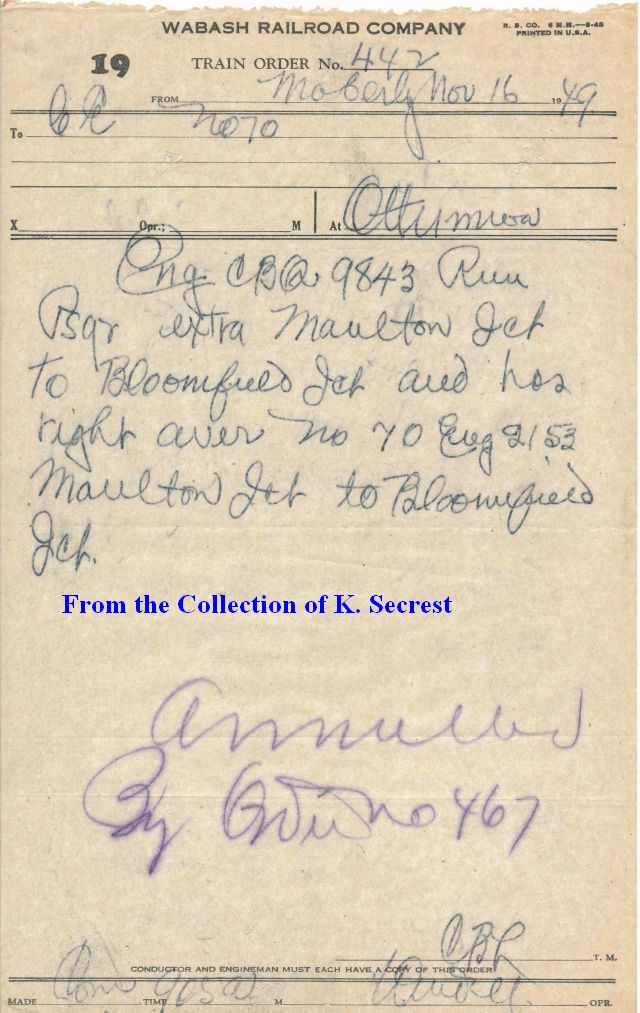 WABASH RAILROAD COMPANY
R. S. CO. 6 M.M.—9-48
PRINTED IN U.S.A.
19 TRAIN ORDER No. 442
FROM Moberly Nov 16 1949
To C&E No 70
X Opr.; M At Ottumwa
Eng CB&Q 9843 Run
Psgr extra Moulton Jct
to Bloomfield Jct and has
right over No 70 Eng 2153
Moulton Jct to Bloomfield
Jct.
From the Collection of K. Secrest
Annulled
By Order No 467
CBL T. M.
CONDUCTOR AND ENGINEMAN MUST EACH HAVE A COPY OF THIS ORDER
MADE Com TIME 905a M OPR.